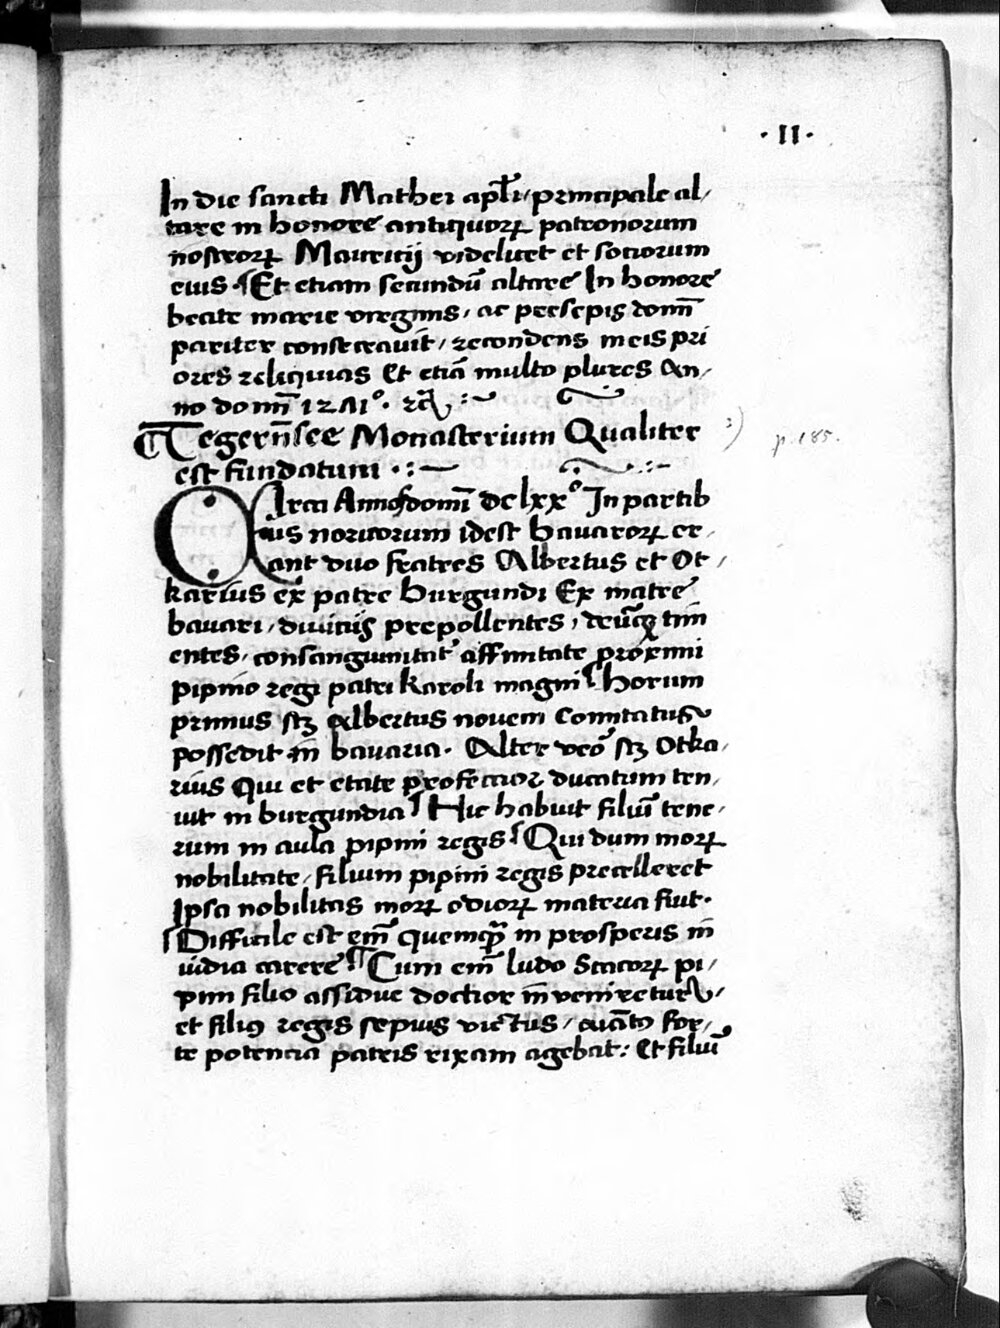 · II ·
In die sancti Mathei apl̄i, principale al,
tare in honore antiquorꝝ patronorum
nostrorꝝ Mauritij videlicet et sociorum
eius · Et etiam secundū altare In honore
beate marie virginis, ac presepis domī
pariter consecrauit, recondens meis pri
ores reliquias Et etiā multo plures An,
no domī 12Λ1°. ⁊cā
Tegerñsee Monasterium Qualiter
est fundatum
Circa Anno domī dclxx° In partib
us noricorum idest bauarorꝝ er,
ant duo fratres Albertus et Ot,
karius ex patre burgundi Ex matre
bauari, diuitijs prepollentes, deūqꝫ tim
entes, consanguinitat' affinitate proximi
pipino regi patri karoli magni horum
primus sꝫ Albertus nouem Comitatus
possedit in bauaria. Alter vero sꝫ Otka,
rius Qui et etate profectior ducatum ten,
uit in burgundia Hic habuit filiū tene,
rum in aula pipini regis Qui dum morꝝ
nobilitate, filium pipini regis precelleret
Ipsa nobilitas morꝝ odiorꝝ materia fuit.
Difficile est em̄ quemqꝫ in prosperis in
uidia carere Cum em̄ ludo Scacorꝝ pi,
pini filio assidue doctior inveniretur,
et filiꝰ regis sepius victus, quāto for,
te potencia patris rixam agebat: Et filiū
p. 185.